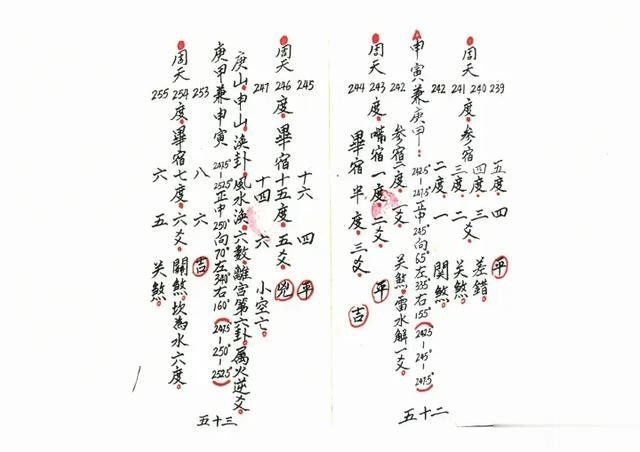 239 五度 四 平
周天 240 241 度參宿
四度 三 差錯
三度 二 关煞
242 二度 一 関煞
申寅兼庚甲:242.5°-247.5°正中245°向65°左335右155°(242.5-245°-247.5°)
242 參宿一度一爻 关煞雷水解一爻
周天243度嘴宿一度二爻 平
244 畢宿半度三爻 吉
五十二
245 十六 四 平
周天246度畢宿十五度五爻 凶
247 十四 六 小空亡
庚山申山渙卦風水渙六數離宮第六卦屬火逆爻
庚甲兼申寅 247.5°-252.5°正中250°向70°左340°右160°(247.5-250°-252.5°)
253 八 六 吉
周天254度畢宿七度六爻關煞坎為水六度
255 六 五 关煞
五十三